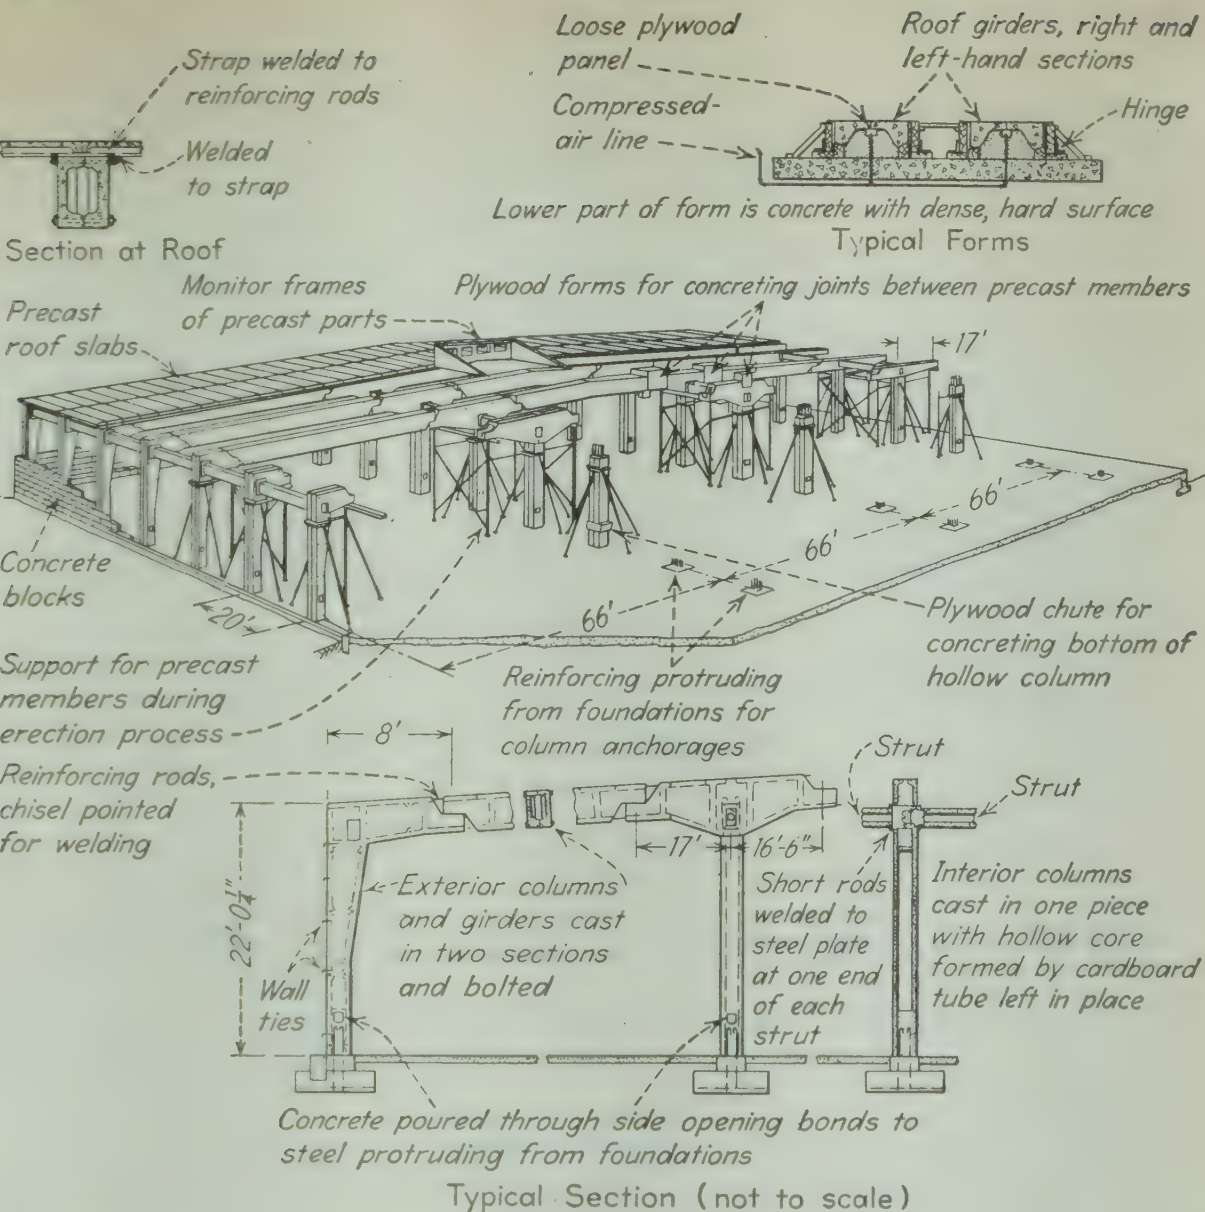 Strap welded to
reinforcing rods
Welded
to strap
Section at Roof
Loose plywood
panel
Compressed-
air line
Roof girders, right and
left-hand sections
Hinge
Lower part of form is concrete with dense, hard surface
Typical Forms
Monitor frames
of precast parts
Plywood forms for concreting joints between precast members
Precast
roof slabs
17'
66'
66'
66'
20'
Concrete
blocks
Support for precast
members during
erection process
Reinforcing protruding
from foundations for
column anchorages
Plywood chute for
concreting bottom of
hollow column
8'
Reinforcing rods,
chisel pointed
for welding
22'-0¼"
Wall
ties
Exterior columns
and girders cast
in two sections
and bolted
17'
16'-6"
Short rods
welded to
steel plate
at one end
of each
strut
Strut
Strut
Interior columns
cast in one piece
with hollow core
formed by cardboard
tube left in place
Concrete poured through side opening bonds to
steel protruding from foundations
Typical Section (not to scale)